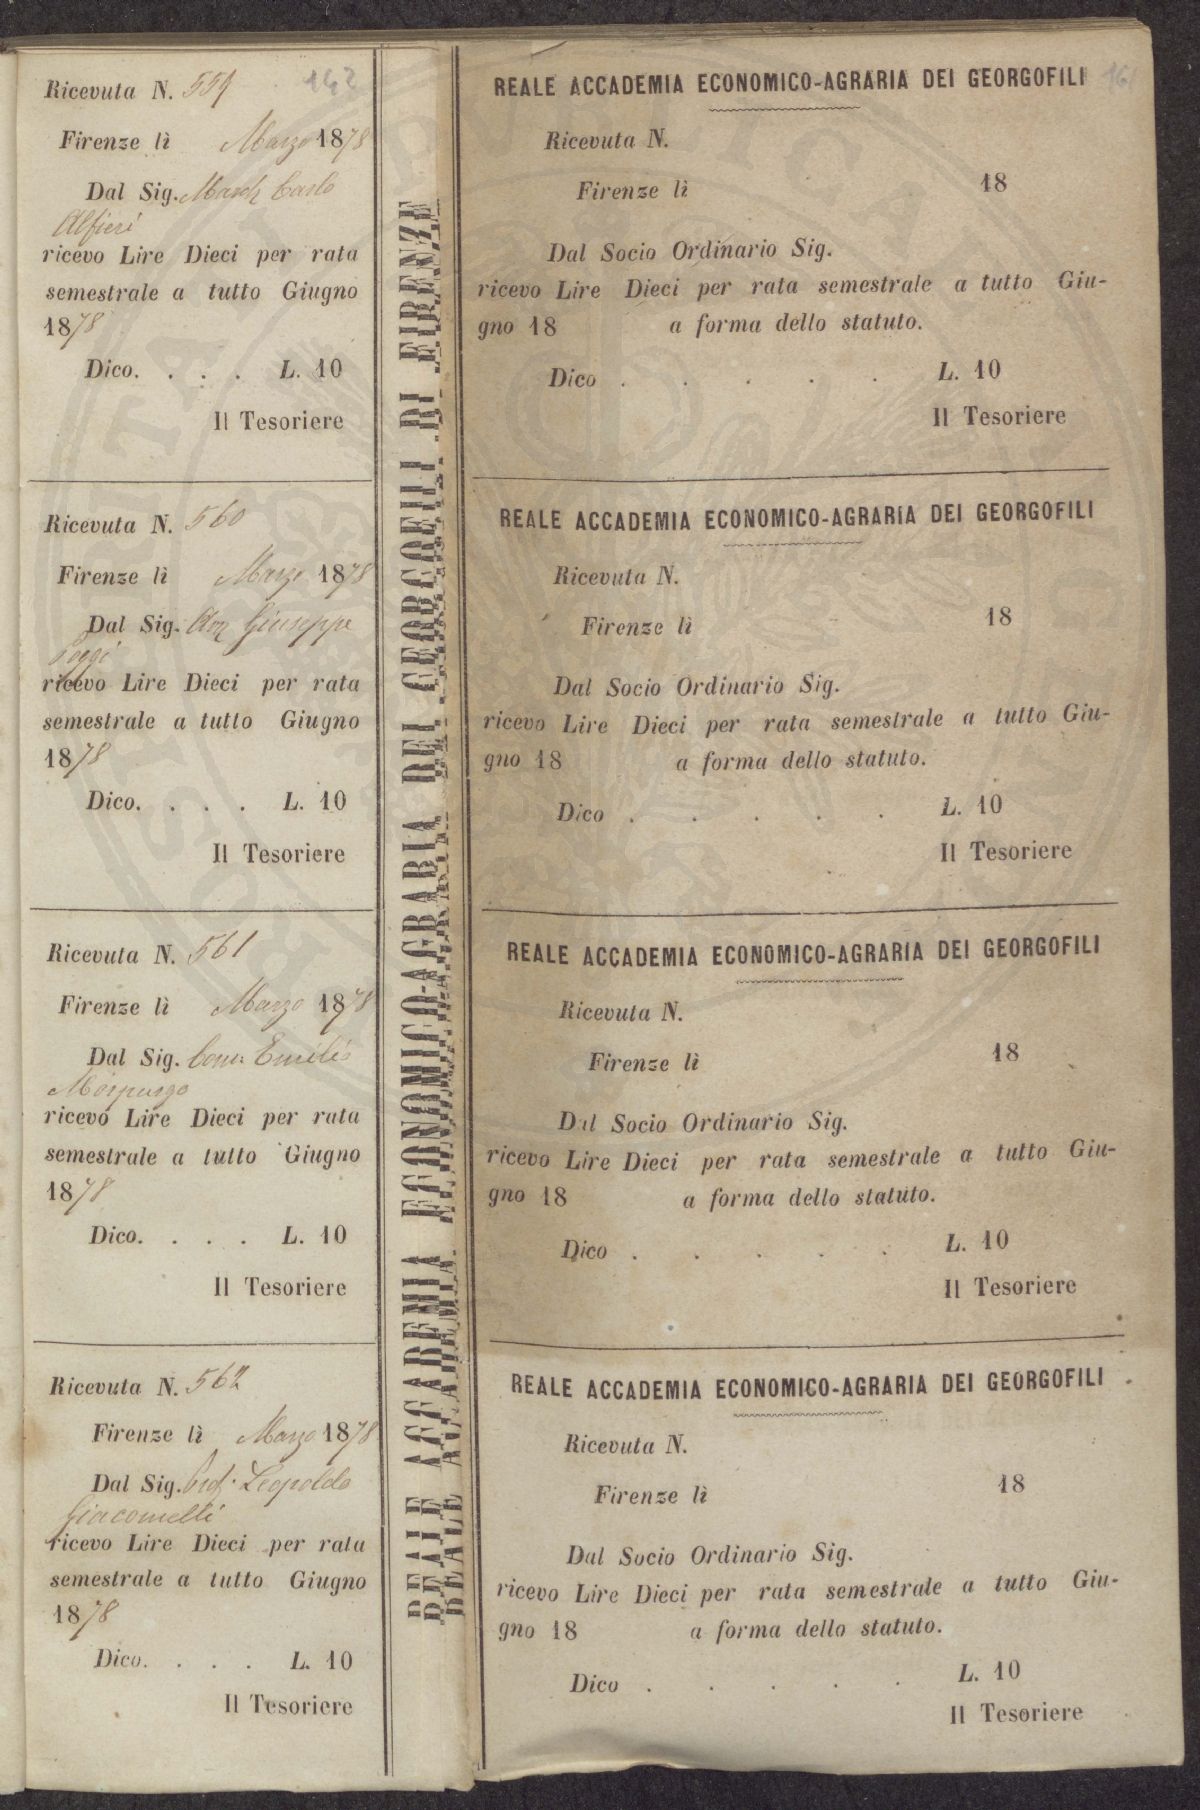 Ricevuta N. 559
142
Firenze lì Marzo 1878
Dal Sig. March Carlo
Alfieri
ricevo Lire Dieci per rata
semestrale a tutto Giugno
1878
Dico. . . . L. 10
Il Tesoriere
Ricevuta N. 560
Firenze lì Marzo 1878
Dal Sig. Giuseppe
Poggi
ricevo Lire Dieci per rata
semestrale a tutto Giugno
1878
Dico. . . . L. 10
Il Tesoriere
Ricevuta N. 561
Firenze lì Marzo 1878
Dal Sig. Com. Emilio
Morpurgo
ricevo Lire Dieci per rata
semestrale a tutto Giugno
1878
Dico. . . . L. 10
Il Tesoriere
Ricevuta N. 562
Firenze lì Marzo 1878
Dal Sig. Prof. Leopoldo
Giacomelli
ricevo Lire Dieci per rata
semestrale a tutto Giugno
1878
Dico. . . . L. 10
Il Tesoriere
REALE ACCADEMIA ECONOMICO-AGRARIA DEI GEORGOFILI DI FIRENZE
REALE ACCADEMIA ECONOMICO-AGRARIA DEI GEORGOFILI
Ricevuta N.
Firenze lì 18
Dal Socio Ordinario Sig.
ricevo Lire Dieci per rata semestrale a tutto Giu-
gno 18 a forma dello statuto.
Dico . . . . . L. 10
Il Tesoriere
REALE ACCADEMIA ECONOMICO-AGRARIA DEI GEORGOFILI
Ricevuta N.
Firenze lì 18
Dal Socio Ordinario Sig.
ricevo Lire Dieci per rata semestrale a tutto Giu-
gno 18 a forma dello statuto.
Dico . . . . . L. 10
Il Tesoriere
REALE ACCADEMIA ECONOMICO-AGRARIA DEI GEORGOFILI
Ricevuta N.
Firenze lì 18
Dal Socio Ordinario Sig.
ricevo Lire Dieci per rata semestrale a tutto Giu-
gno 18 a forma dello statuto.
Dico . . . . . L. 10
Il Tesoriere
REALE ACCADEMIA ECONOMICO-AGRARIA DEI GEORGOFILI
Ricevuta N.
Firenze lì 18
Dal Socio Ordinario Sig.
ricevo Lire Dieci per rata semestrale a tutto Giu-
gno 18 a forma dello statuto.
Dico . . . . . L. 10
Il Tesoriere